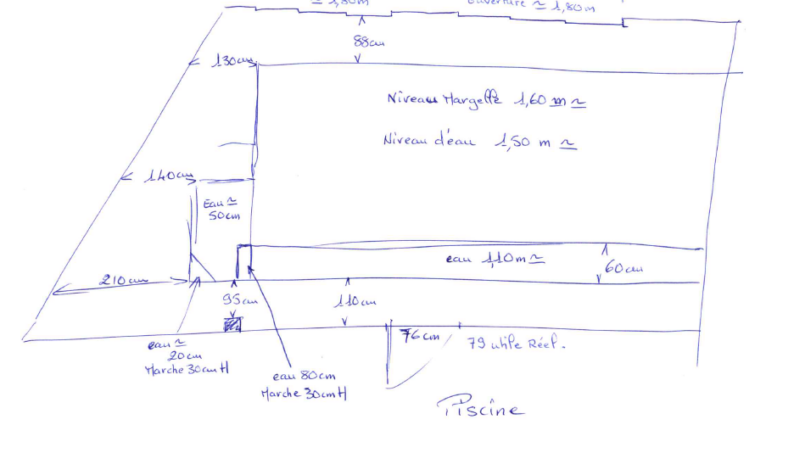 ≃ 1,80m
ouverture ≃ 1,80m
88cm
130cm
Niveau Margelle 1,60 m ≃
Niveau d'eau 1,50 m ≃
140cm
Eau ≃
50cm
eau 1,10m ≃
60cm
210cm
95cm
110cm
76cm
79 utile Réel.
eau ≃
20cm
Marche 30cm H
eau 80cm
Marche 30cm H
Piscine